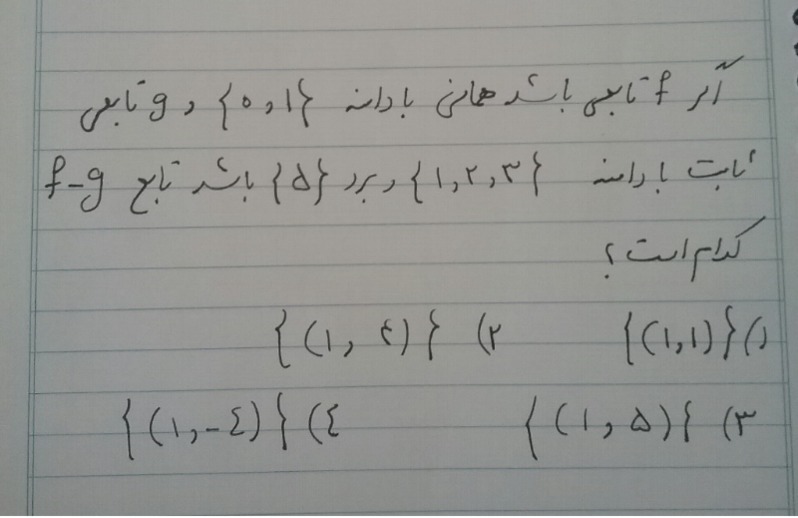 اگر f تابعی باشد همانی با دامنه {۰,۱} و g تابعی
ثابت با دامنه {۱,۲,۳} و برد {۵} باشد تابع f-g
کدام است؟
۱) {(۱,۱)} ۲) {(۱,۴)}
۳) {(۱,۵)} ٤) {(۱,-٤)}